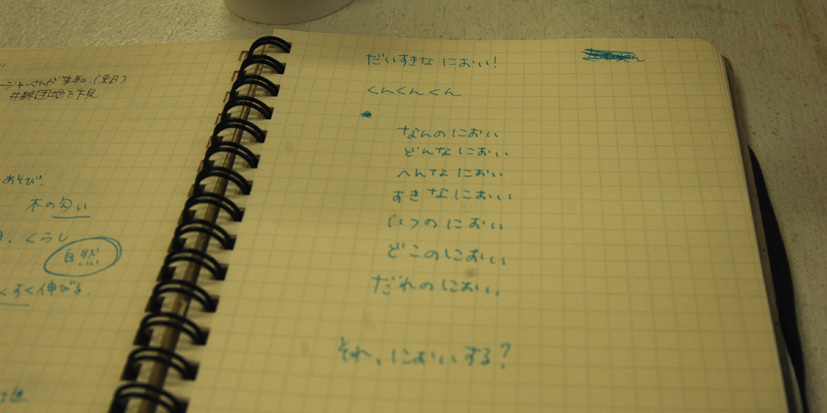 あそび。
木の匂い
くらし
自然
すく伸びる。
だいすきな におい!
くんくんくん
なんの におい
どんな におい
へんな におい
すきな におい
いつの におい
どこの におい
だれの におい
それ、においする?